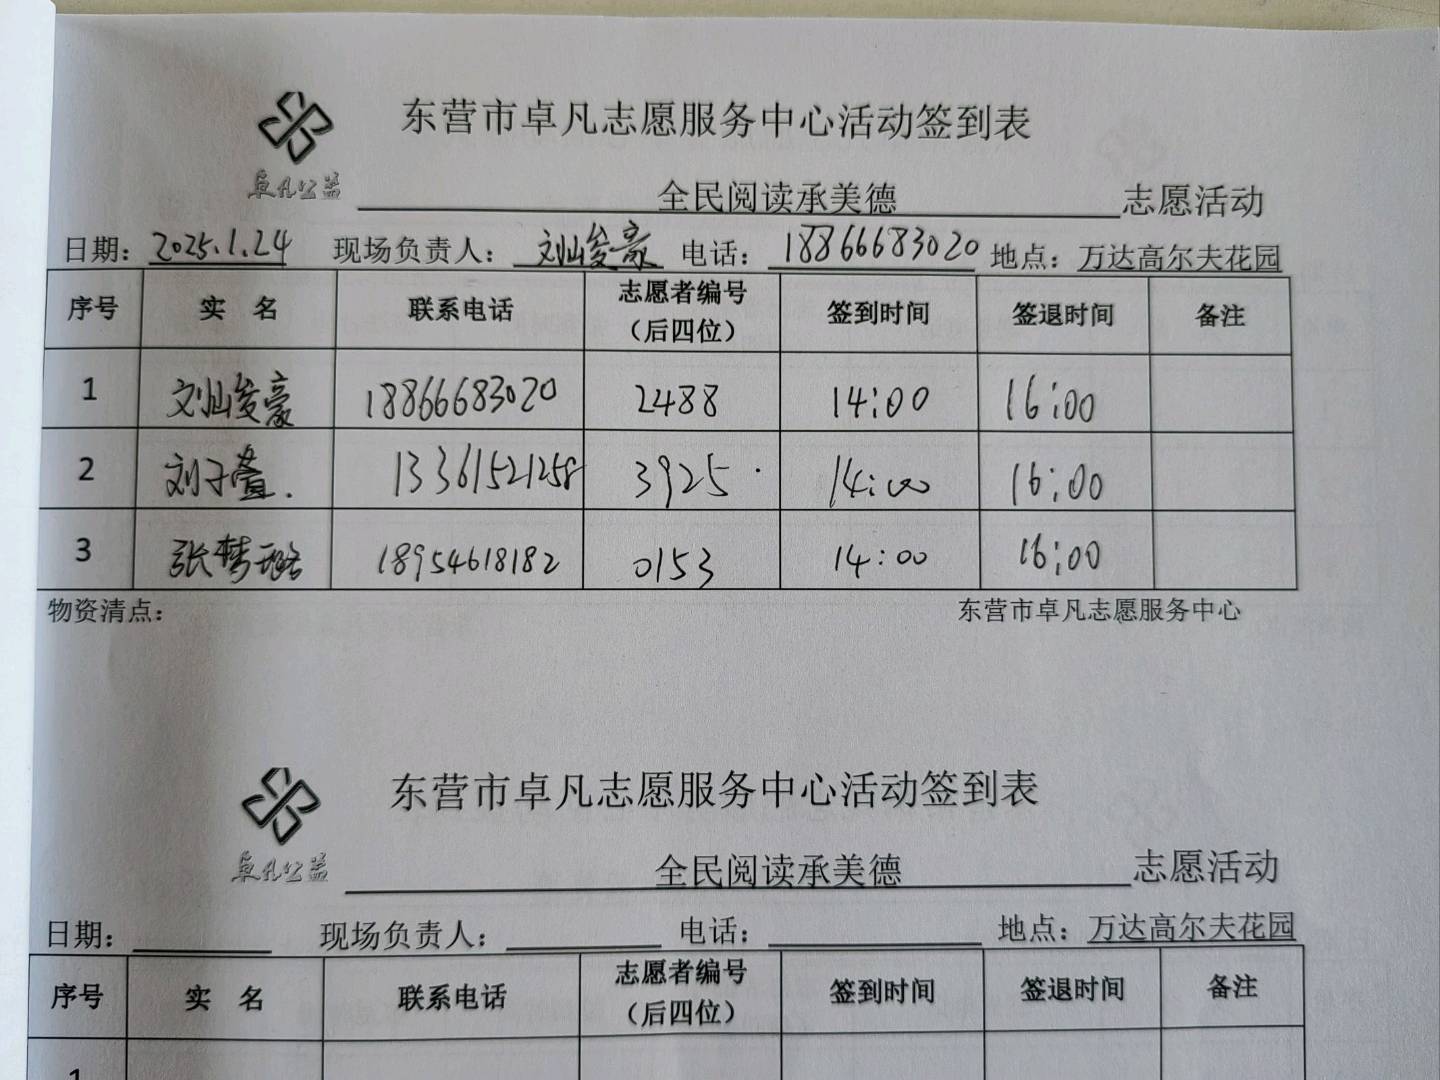 东营市卓凡志愿服务中心活动签到表
卓凡公益
全民阅读承美德 志愿活动
日期：2025.1.24 现场负责人：刘灿俊豪 电话：18866683020 地点：万达高尔夫花园
序号 实 名 联系电话 志愿者编号（后四位） 签到时间 签退时间 备注
1 刘灿俊豪 18866683020 2488 14:00 16:00
2 刘子萱. 13361521258 3925 14:00 16:00
3 张梦璐 18954618182 0153 14:00 16:00
物资清点： 东营市卓凡志愿服务中心
东营市卓凡志愿服务中心活动签到表
卓凡公益
全民阅读承美德 志愿活动
日期： 现场负责人： 电话： 地点：万达高尔夫花园
序号 实 名 联系电话 志愿者编号（后四位） 签到时间 签退时间 备注
1